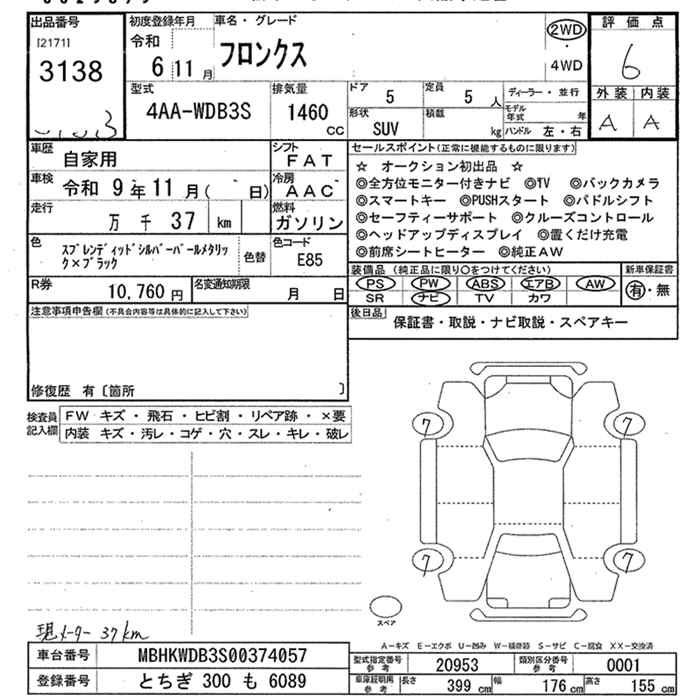 出品番号 初度登録年月 車名・グレード 評価点
[2171] 令和 フロンクス 2WD 6
3138 6 11月 4WD
型式 排気量 ドア 定員 ディーラー・並行 外装 内装
4AA-WDB3S 1460 CC 5 5人 モデル年式 年 A A
形状 積載 kg ハンドル 左・右
SUV
車歴 自家用 シフト FAT セールスポイント(正常に機能するものに限ります)
車検 令和 9年11月( 日) 冷房 AAC ☆ オークション初出品 ☆
◎全方位モニター付きナビ ◎TV ◎バックカメラ
走行 万 千 37 km 燃料 ガソリン ◎スマートキー ◎PUSHスタート ◎パドルシフト
◎セーフティーサポート ◎クルーズコントロール
色 スプレンディッドシルバーパールメタリック×ブラック 色替 色コード E85 ◎ヘッドアップディスプレイ ◎置くだけ充電
◎前席シートヒーター ◎純正AW
R券 10,760円 名変通知期限 月 日 装備品 (純正品に限り○をつけてください) 新車保証書
PS PW ABS エアB AW 有・無
SR ナビ TV カワ
注意事項申告欄(不具合内容等は具体的に記入して下さい) 後日品 保証書・取説・ナビ取説・スペアキー
修復歴 有〔箇所 〕
検査員記入欄 FW キズ・飛石・ヒビ割・リペア跡・×要
内装 キズ・汚レ・コゲ・穴・スレ・キレ・破レ
7 7
7 7
スペア
現メーター 37km
A-キズ E-エクボ U-凹み W-補修跡 S-サビ C-腐食 XX-交換済
車台番号 MBHKWDB3S00374057 型式指定番号 参考 20953 類別区分番号 参考 0001
登録番号 とちぎ 300 も 6089 車庫証明用 参考 長さ 399 cm 幅 176 cm 高さ 155 cm